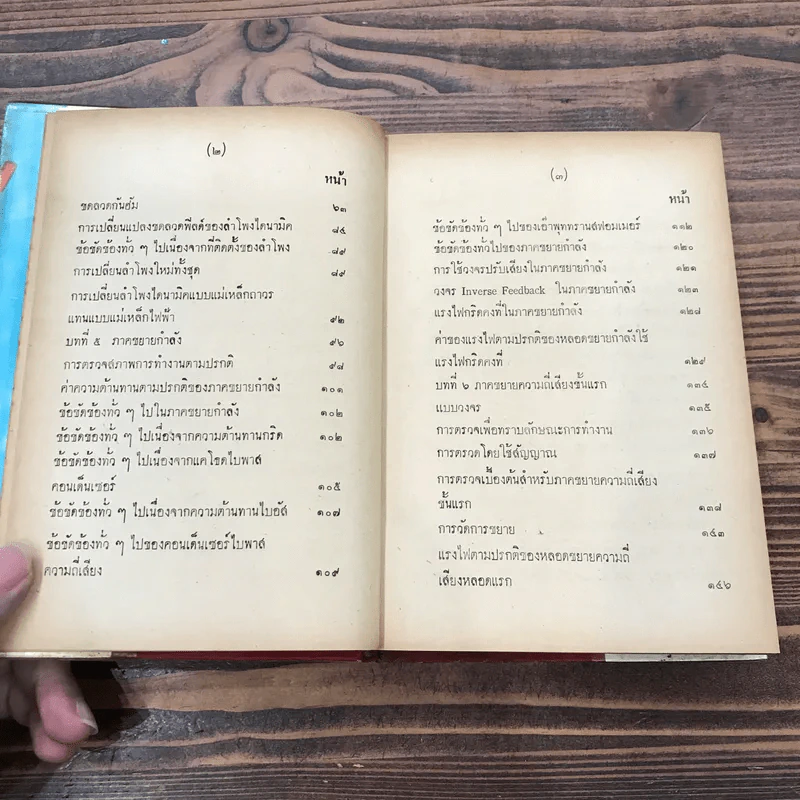 (๒)
หน้า
ขดลวดกันฮัม ๖๓
การเปลี่ยนแปลงขดลวดฟิลด์ของลำโพงไดนามิค ๘๔
ข้อขัดข้องทั่ว ๆ ไปเนื่องจากที่ติดตั้งของลำโพง ๘๙
การเปลี่ยนลำโพงใหม่ทั้งชุด ๘๙
การเปลี่ยนลำโพงไดนามิคแบบแม่เหล็กถาวร
แทนแบบแม่เหล็กไฟฟ้า ๙๒
บทที่ ๕ ภาคขยายกำลัง ๙๖
การตรวจสภาพการทำงานตามปรกติ ๙๘
ค่าความต้านทานตามปรกติของภาคขยายกำลัง ๑๐๑
ข้อขัดข้องทั่ว ๆ ไปในภาคขยายกำลัง ๑๐๒
ข้อขัดข้องทั่ว ๆ ไปเนื่องจากความต้านทานกริด ๑๐๒
ข้อขัดข้องทั่ว ๆ ไปเนื่องจากแคโธดไบพาส
คอนเด็นเซอร์ ๑๐๕
ข้อขัดข้องทั่ว ๆ ไปเนื่องจากความต้านทานไบอัส ๑๐๗
ข้อขัดข้องทั่ว ๆ ไปของคอนเด็นเซอร์ไบพาส
ความถี่เสียง ๑๐๙
(๓)
หน้า
ข้อขัดข้องทั่ว ๆ ไปของเอ๊าพุททรานสฟอมเมอร์ ๑๑๒
ข้อขัดข้องทั่วไปของภาคขยายกำลัง ๑๒๐
การใช้วงจรปรับเสียงในภาคขยายกำลัง ๑๒๑
วงจร Inverse Feedback ในภาคขยายกำลัง ๑๒๓
แรงไฟกริดคงที่ในภาคขยายกำลัง ๑๒๗
ค่าของแรงไฟตามปรกติของหลอดขยายกำลังใช้
แรงไฟกริดคงที่ ๑๒๙
บทที่ ๖ ภาคขยายความถี่เสียงชั้นแรก ๑๓๔
แบบวงจร ๑๓๕
การตรวจเพื่อทราบลักษณะการทำงาน ๑๓๖
การตรวดโดยใช้สัญญาณ ๑๓๗
การตรวจเบื้องต้นสำหรับภาคขยายความถี่เสียง
ชั้นแรก ๑๓๗
การวัดการขยาย ๑๔๓
แรงไฟตามปรกติของหลอดขยายความถี่
เสียงหลอดแรก ๑๔๖